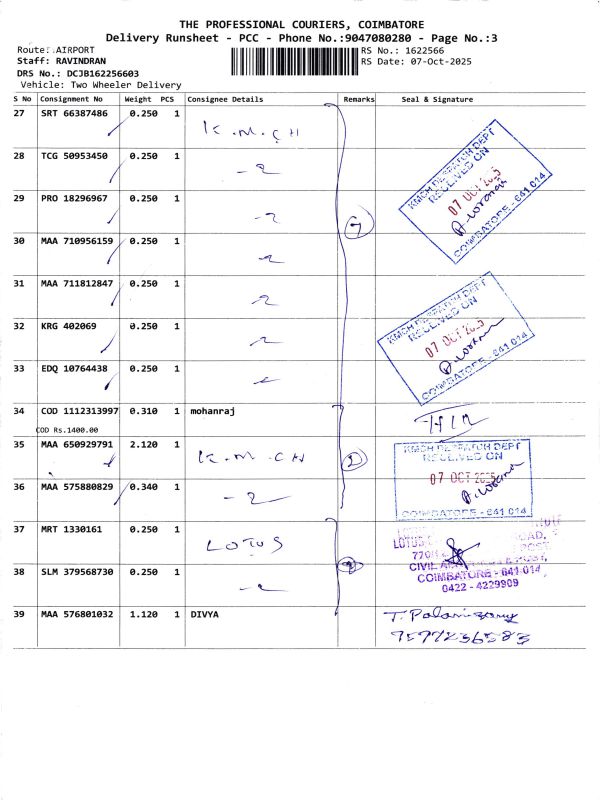 THE PROFESSIONAL COURIERS, COIMBATORE
Delivery Runsheet - PCC - Phone No.:9047080280 - Page No.:3
Route: AIRPORT RS No.: 1622566
Staff: RAVINDRAN RS Date: 07-Oct-2025
DRS No.: DCJB162256603
Vehicle: Two Wheeler Delivery
S No Consignment No Weight PCS Consignee Details Remarks Seal & Signature
27 SRT 66387486 0.250 1 K.M.CH
28 TCG 50953450 0.250 1
29 PRO 18296967 0.250 1
30 MAA 710956159 0.250 1
31 MAA 711812847 0.250 1
32 KRG 402069 0.250 1
33 EDQ 10764438 0.250 1
KMCH DESPATCH DEPT
RECEIVED ON
07 OCT 2025
COIMBATORE - 641 014
KMCH DESPATCH DEPT
RECEIVED ON
07 OCT 2025
COIMBATORE - 641 014
34 COD 1112313997 0.310 1 mohanraj
COD Rs.1400.00
35 MAA 650929791 2.120 1 K.M.CH
36 MAA 575880829 0.340 1
KMCH DESPATCH DEPT
RECEIVED ON
07 OCT 2025
COIMBATORE - 641 014
37 MRT 1330161 0.250 1 LOTUS
38 SLM 379568730 0.250 1
LOTUS ROAD,
POST
CIVIL
COIMBATORE - 641 014
0422 - 4229909
39 MAA 576801032 1.120 1 DIVYA
7597236583